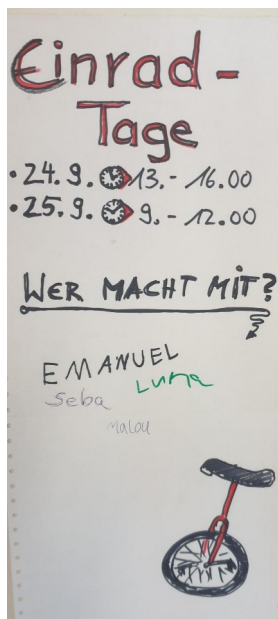 Einrad-
Tage
• 24.9. 13.- 16.00
• 25.9. 9.- 12.00
WER MACHT MIT?
EMANUEL
Luna
Seba
Malou